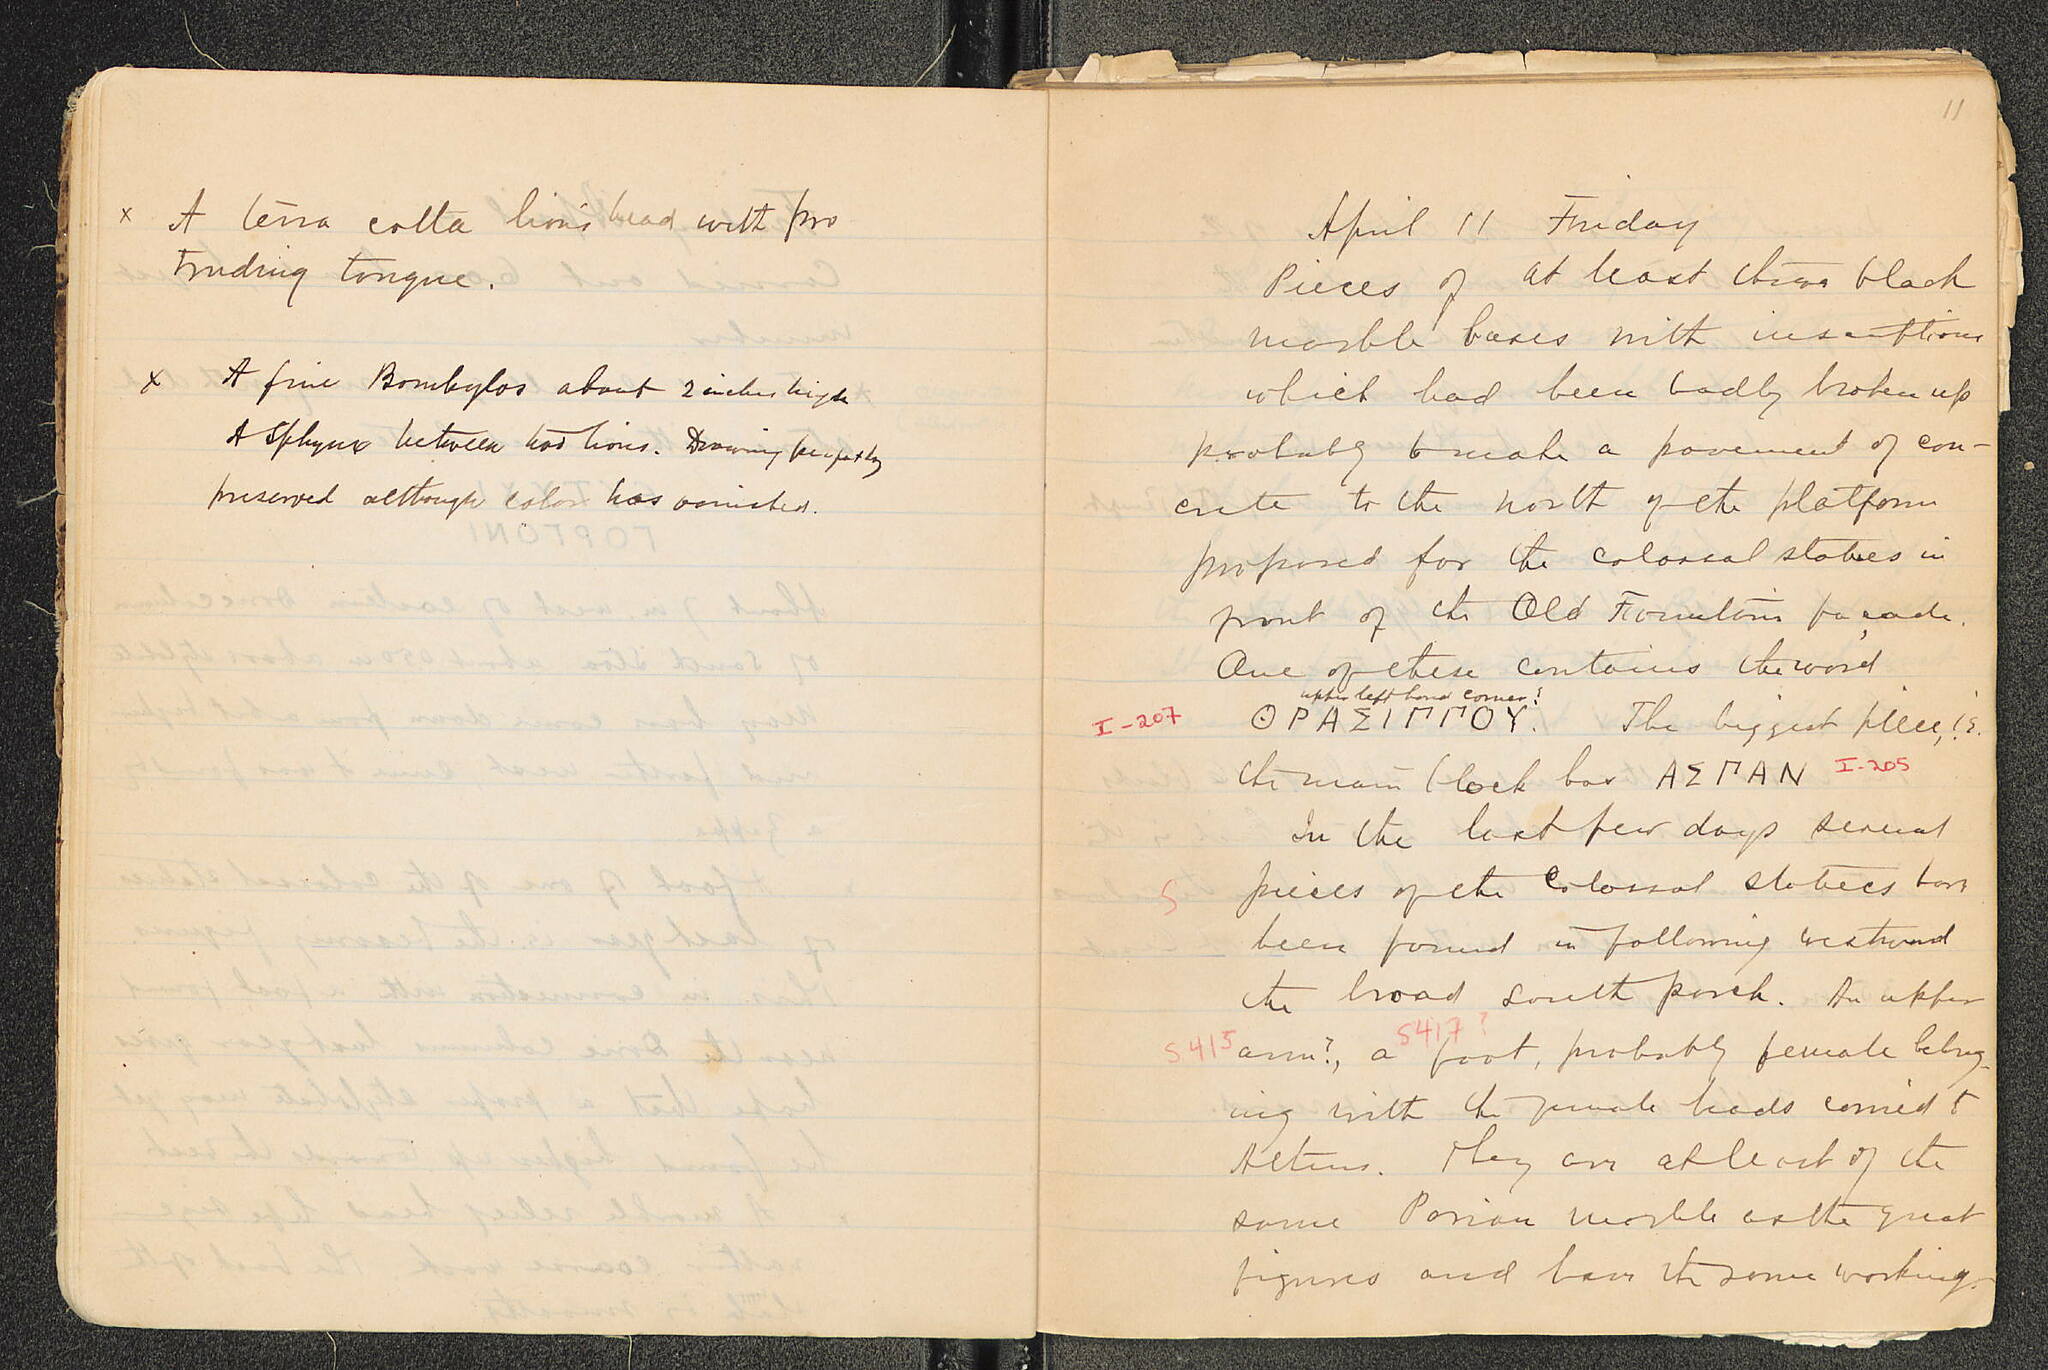 x A terra cotta lion's head with pro
truding tongue.
x A fine Bombylos about 2 inches high
A Sphynx between two lions. Drawing perfectly
preserved although color has vanished.
11
April 11 Friday
Pieces of at least three black
marble bases with inscriptions
which had been badly broken up
probably to make a pavement of con-
crete to the north of the platform
proposed for the colossal statues in
front of the Old Fountain façade.
One of these contains the word
upper left hand corner?
I-207 ΘΡΑΣΙΠΠΟΥ. The biggest piece, i.e.
the main block has ΑΣΠΑΝ I-205
In the last few days several
S pieces of the Colossal statues have
been found in following westward
the broad south porch. An upper
S415 S417?
arm?, a foot, probably female belong-
ing with the female heads carried to
Athens. They are at least of the
same Parian marble as the great
figures and have the same working.